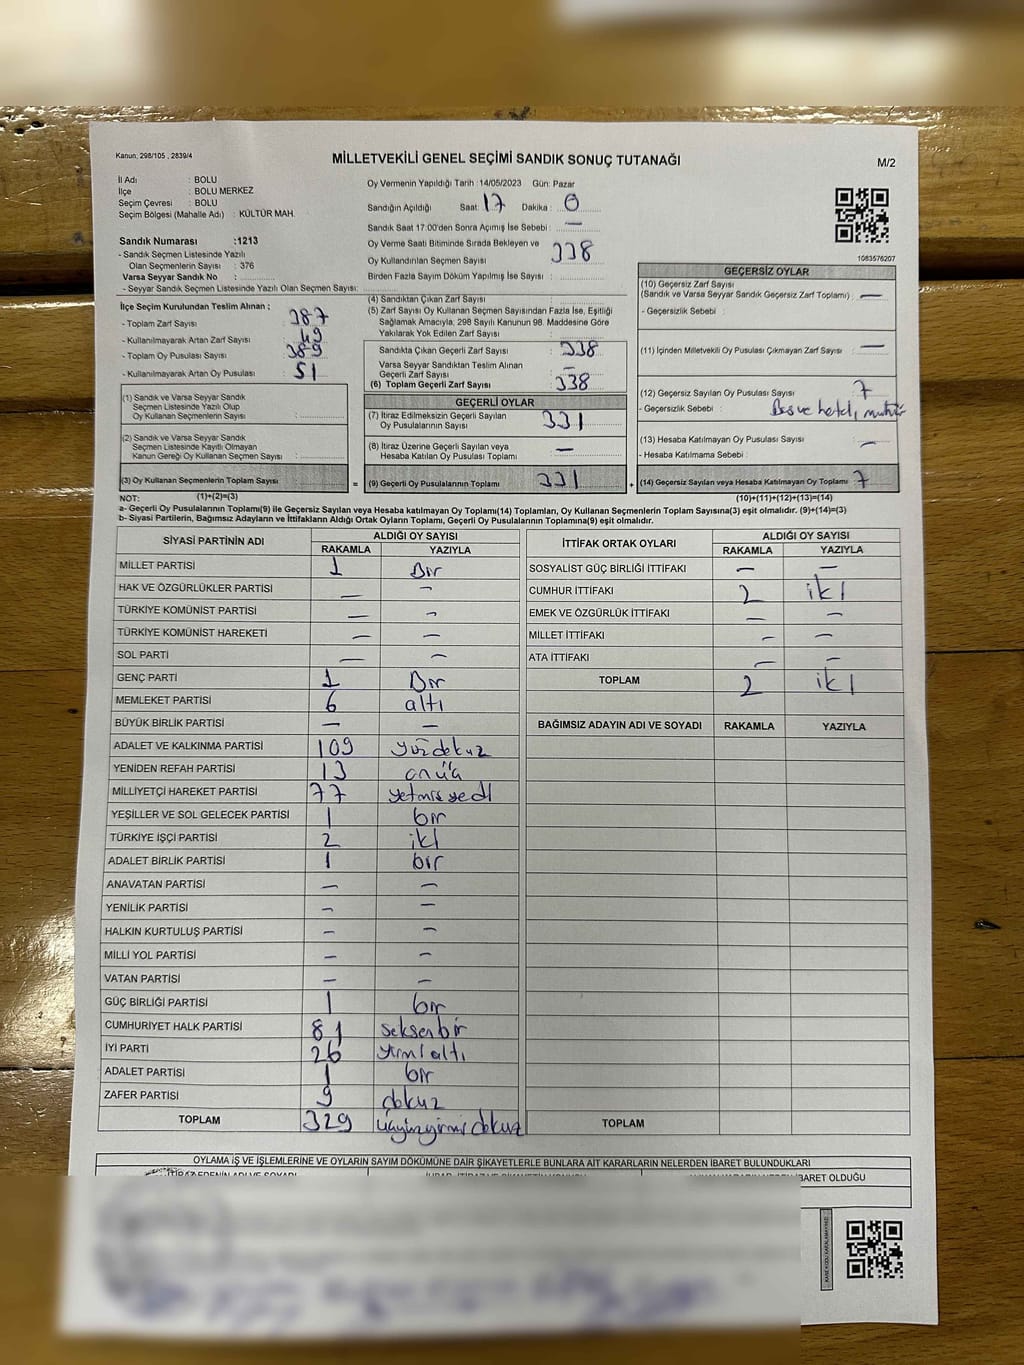 Kanun; 298/105 , 2839/4
MİLLETVEKİLİ GENEL SEÇİMİ SANDIK SONUÇ TUTANAĞI
M/2
İl Adı : BOLU
İlçe : BOLU MERKEZ
Seçim Çevresi : BOLU
Seçim Bölgesi (Mahalle Adı) : KÜLTÜR MAH.
Oy Vermenin Yapıldığı Tarih :14/05/2023 Gün: Pazar
Sandığın Açıldığı Saat: 17 Dakika : 0
Sandık Saat 17.00'den Sonra Açımış İse Sebebi : —
Oy Verme Saati Bitiminde Sırada Bekleyen ve
Oy Kullandırılan Seçmen Sayısı : 338
Birden Fazla Sayım Döküm Yapılmış İse Sayısı :
1083576207
Sandık Numarası :1213
- Sandık Seçmen Listesinde Yazılı
Olan Seçmenlerin Sayısı : 376
Varsa Seyyar Sandık No :
- Seyyar Sandık Seçmen Listesinde Yazılı Olan Seçmen Sayısı:
İlçe Seçim Kurulundan Teslim Alınan ;
- Toplam Zarf Sayısı : 387
- Kullanılmayarak Artan Zarf Sayısı : 49
- Toplam Oy Pusulası Sayısı : 389
- Kullanılmayarak Artan Oy Pusulası : 51
(1) Sandık ve Varsa Seyyar Sandık
Seçmen Listesinde Yazılı Olup
Oy Kullanan Seçmenlerin Sayısı :
(2) Sandık ve Varsa Seyyar Sandık
Seçmen Listesinde Kayıtlı Olmayan
Kanun Gereği Oy Kullanan Seçmen Sayısı :
(3) Oy Kullanan Seçmenlerin Toplam Sayısı
(4) Sandıktan Çıkan Zarf Sayısı :
(5) Zarf Sayısı Oy Kullanan Seçmen Sayısından Fazla İse, Eşitliği
Sağlamak Amacıyla, 298 Sayılı Kanunun 98. Maddesine Göre
Yakılarak Yok Edilen Zarf Sayısı :
Sandıkta Çıkan Geçerli Zarf Sayısı : 338
Varsa Seyyar Sandıktan Teslim Alınan
Geçerli Zarf Sayısı : —
(6) Toplam Geçerli Zarf Sayısı : 338
GEÇERLİ OYLAR
(7) İtiraz Edilmeksizin Geçerli Sayılan
Oy Pusulalarının Sayısı : 331
(8) İtiraz Üzerine Geçerli Sayılan veya
Hesaba Katılan Oy Pusulası Toplamı : —
= (9) Geçerli Oy Pusulalarının Toplamı : 331
GEÇERSİZ OYLAR
(10) Geçersiz Zarf Sayısı
(Sandık ve Varsa Seyyar Sandık Geçersiz Zarf Toplamı) : —
- Geçersizlik Sebebi :
(11) İçinden Milletvekili Oy Pusulası Çıkmayan Zarf Sayısı : —
(12) Geçersiz Sayılan Oy Pusulası Sayısı : 7
- Geçersizlik Sebebi :
(13) Hesaba Katılmayan Oy Pusulası Sayısı : —
- Hesaba Katılmama Sebebi :
+ (14) Geçersiz Sayılan veya Hesaba Katılmayan Oy Toplamı : 7
NOT: (1)+(2)=(3)
(10)+(11)+(12)+(13)=(14)
a- Geçerli Oy Pusulalarının Toplamı(9) ile Geçersiz Sayılan veya Hesaba Katılmayan Oy Toplamı(14) Toplamları, Oy Kullanan Seçmenlerin Toplam Sayısına(3) eşit olmalıdır. (9)+(14)=(3)
b- Siyasi Partilerin, Bağımsız Adayların ve İttifakların Aldığı Ortak Oyların Toplamı, Geçerli Oy Pusulalarının Toplamına(9) eşit olmalıdır.
SİYASİ PARTİNİN ADI ALDIĞI OY SAYISI
RAKAMLA YAZIYLA
MİLLET PARTİSİ 1 Bir
HAK VE ÖZGÜRLÜKLER PARTİSİ — —
TÜRKİYE KOMÜNİST PARTİSİ — —
TÜRKİYE KOMÜNİST HAREKETİ — —
SOL PARTİ — —
GENÇ PARTİ 1 Bir
MEMLEKET PARTİSİ 6 altı
BÜYÜK BİRLİK PARTİSİ — —
ADALET VE KALKINMA PARTİSİ 109 yüzdokuz
YENİDEN REFAH PARTİSİ 13 onüç
MİLLİYETÇİ HAREKET PARTİSİ 77 yetmişyedi
YEŞİLLER VE SOL GELECEK PARTİSİ 1 bir
TÜRKİYE İŞÇİ PARTİSİ 2 iki
ADALET BİRLİK PARTİSİ 1 bir
ANAVATAN PARTİSİ — —
YENİLİK PARTİSİ — —
HALKIN KURTULUŞ PARTİSİ — —
MİLLİ YOL PARTİSİ — —
VATAN PARTİSİ — —
GÜÇ BİRLİĞİ PARTİSİ 1 bir
CUMHURİYET HALK PARTİSİ 81 seksenbir
İYİ PARTİ 26 yirmialtı
ADALET PARTİSİ 1 bir
ZAFER PARTİSİ 9 dokuz
TOPLAM 329 üçyüzyirmidokuz
İTTİFAK ORTAK OYLARI ALDIĞI OY SAYISI
RAKAMLA YAZIYLA
SOSYALİST GÜÇ BİRLİĞİ İTTİFAKI — —
CUMHUR İTTİFAKI 2 iki
EMEK VE ÖZGÜRLÜK İTTİFAKI — —
MİLLET İTTİFAKI — —
ATA İTTİFAKI — —
TOPLAM 2 iki
BAĞIMSIZ ADAYIN ADI VE SOYADI RAKAMLA YAZIYLA
TOPLAM
OYLAMA İŞ VE İŞLEMLERİNE VE OYLARIN SAYIM DÖKÜMÜNE DAİR ŞİKAYETLERLE BUNLARA AİT KARARLARIN NELERDEN İBARET BULUNDUKLARI
İBARET OLDUĞU